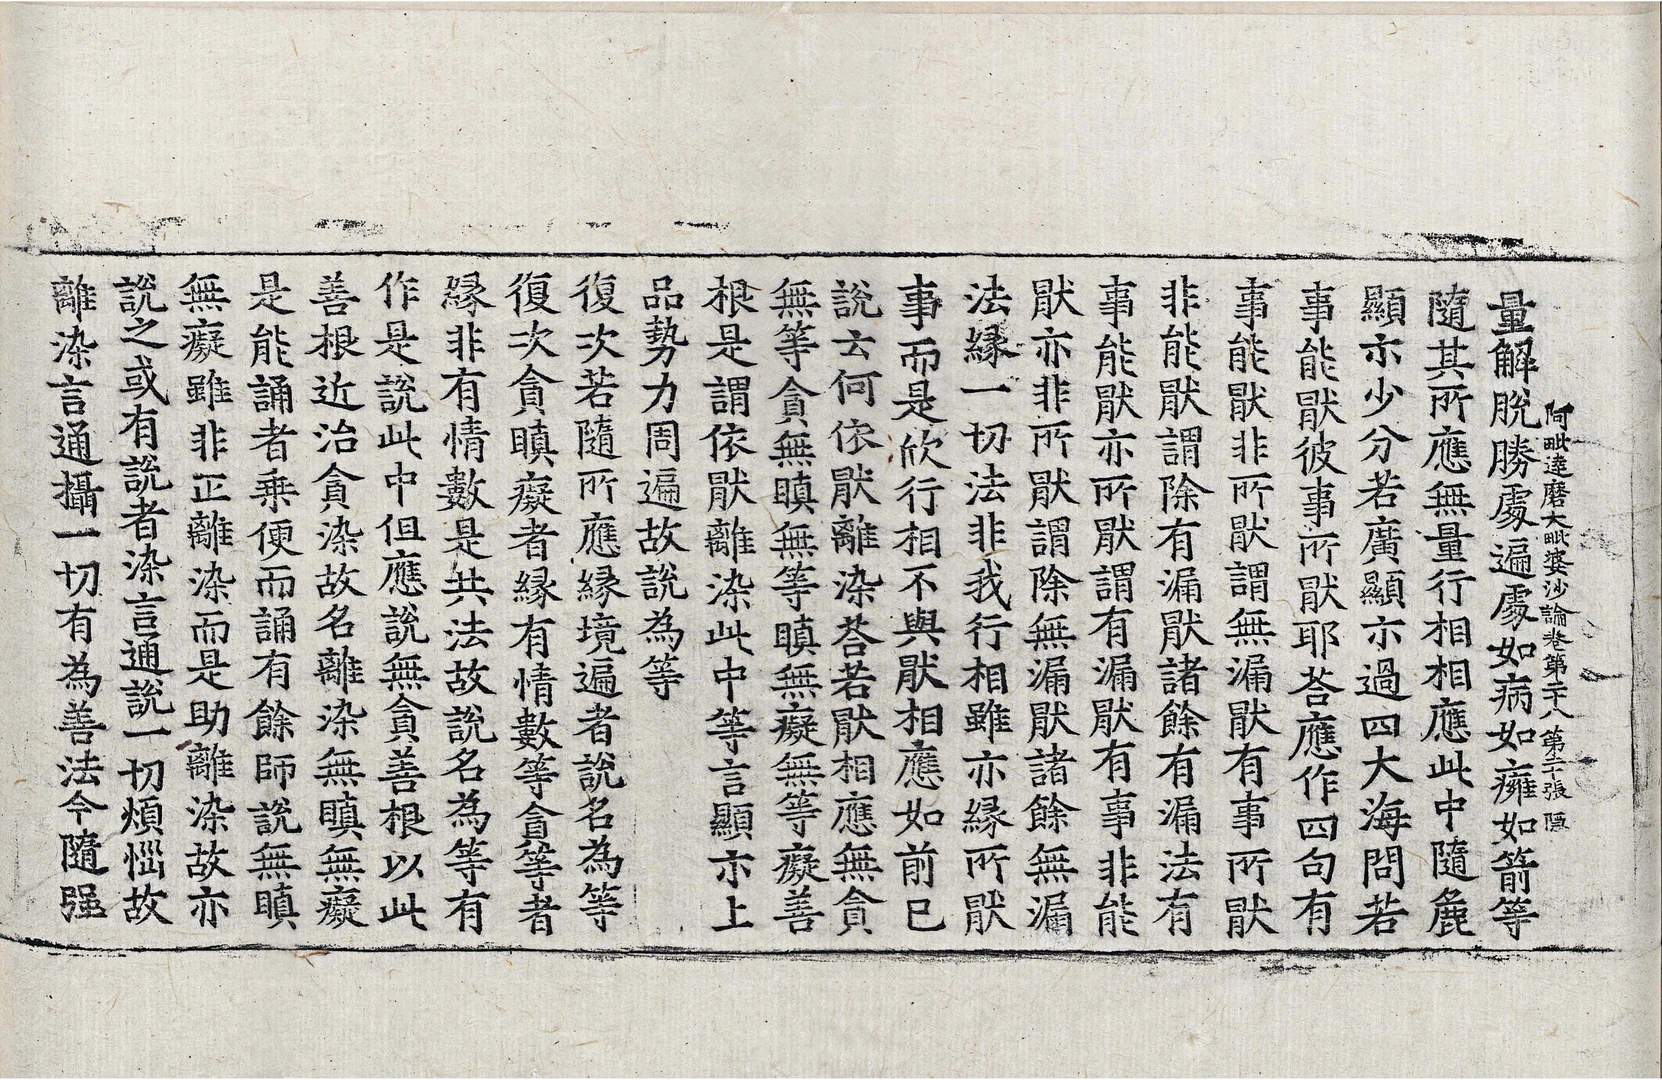 阿毗達磨大毗婆沙論卷第二十八 第二十張 隱
量解脫勝處遍處如病如癰如箭等
隨其所應無量行相相應此中隨麁
顯亦少分若廣顯亦過四大海問若
事能猒彼事所猒耶荅應作四句有
事能猒非所猒謂無漏猒有事所猒
非能猒謂除有漏猒諸餘有漏法有
事能猒亦所猒謂有漏猒有事非能
猒亦非所猒謂除無漏猒諸餘無漏
法緣一切法非我行相雖亦緣所猒
事而是欣行相不與猒相應如前已
說云何依猒離染荅若猒相應無貪
無等貪無瞋無等瞋無癡無等癡善
根是謂依猒離染此中等言顯亦上
品勢力周遍故說為等
復次若隨所應緣境遍者說名為等
復次貪瞋癡者緣有情數等貪等者
緣非有情數是共法故說名為等有
作是說此中但應說無貪善根以此
善根近治貪染故名離染無瞋無癡
是能誦者乘便而誦有餘師說無瞋
無癡雖非正離染而是助離染故亦
說之或有說者染言通說一切煩惱故
離染言通攝一切有為善法今隨强